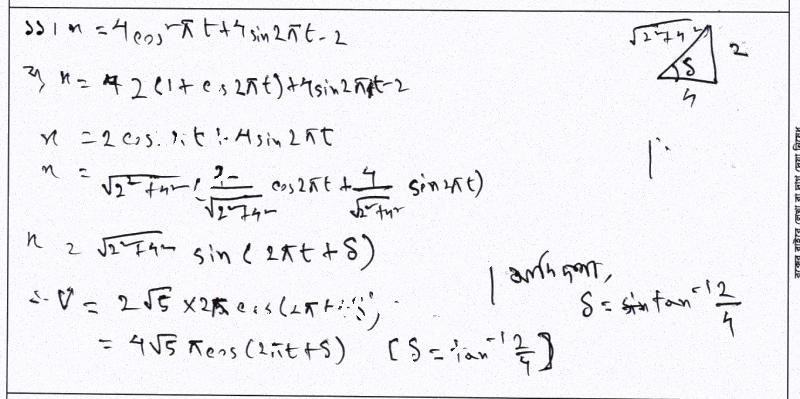 ১১। x = 4cos²πt + 4sin2πt - 2
⇒ x = 2(1 + cos2πt) + 4sin2πt - 2
x = 2cos2πt + 4sin2πt
x = √2²+4² (2/√2²+4² cos2πt + 4/√2²+4² sin2πt)
x = √2²+4² sin(2πt + δ)
∴ V = 2√5 × 2π cos(2πt + δ)
= 4√5 π cos(2πt + δ) [δ = tan⁻¹ 2/4]
√2²+4²
2
δ
4
আদি দশা,
δ = tan⁻¹ 2/4